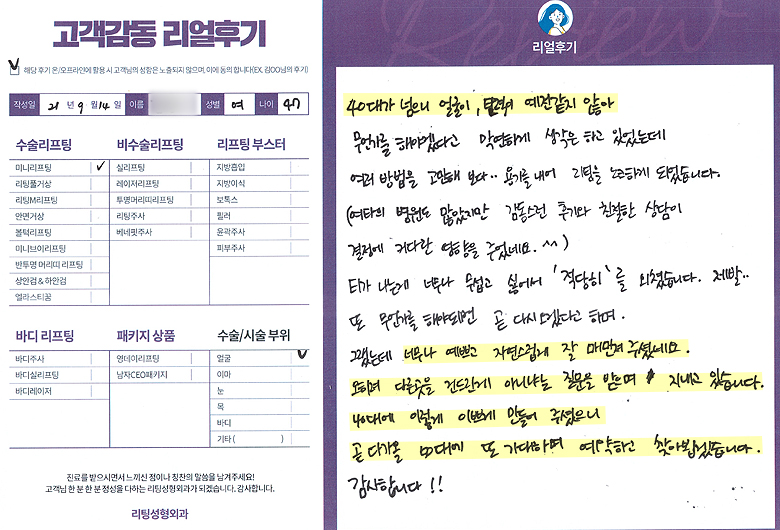 고객감동 리얼후기
✓ 해당 후기 온/오프라인에 활용 시 고객님의 성함은 노출되지 않으며, 이에 동의 합니다(EX. 김OO님의 후기)
작성일 21 년 9 월 14 일 이름 성별 여 나이 47
수술리프팅
미니리프팅 ✓
리팅풀거상
리팅M리프팅
안면거상
볼턱리프팅
미니브이리프팅
반투명 머리띠 리프팅
상안검 & 하안검
엘라스티꿈
비수술리프팅
실리프팅
레이저리프팅
투명머리띠리프팅
리팅주사
베네핏주사
리프팅 부스터
지방흡입
지방이식
보톡스
필러
윤곽주사
피부주사
바디 리프팅
바디주사
바디실리프팅
바디레이저
패키지 상품
원데이리프팅
남자CEO패키지
수술/시술 부위
얼굴 ✓
이마
눈
목
바디
기타 ( )
진료를 받으시면서 느끼신 점이나 칭찬의 말씀을 남겨주세요!
고객님 한 분 한 분 정성을 다하는 리팅성형외과가 되겠습니다. 감사합니다.
리팅성형외과
Review
리얼후기
40대가 넘으니 얼굴이, 탄력이 예전같지 않아
무언가를 해야겠다고 막연하게 생각은 하고 있었는데
여러 방법을 고민해 보다.. 용기를 내어 리팅을 노크하게 되었습니다.
(여타의 병원도 많았지만 감동스런 후기와 친절한 상담이
결정에 커다란 영향을 주었네요. ^^)
티가 나는게 너무나 무섭고 싫어서 '적당히'를 외쳤습니다. 제발..
또 무언가를 해야되면 곧 다시 오겠다고 하며.
그랬는데 너무나 예쁘고 자연스럽게 잘 매만져 주셨네요.
오히려 다른곳을 건드린게 아니냐는 질문을 받으며 지내고 있습니다.
40대에 이렇게 이쁘게 만들어 주셨으니
곧 다가올 50대에 또 기대하며 예약하고 찾아뵙겠습니다.
감사합니다 !!